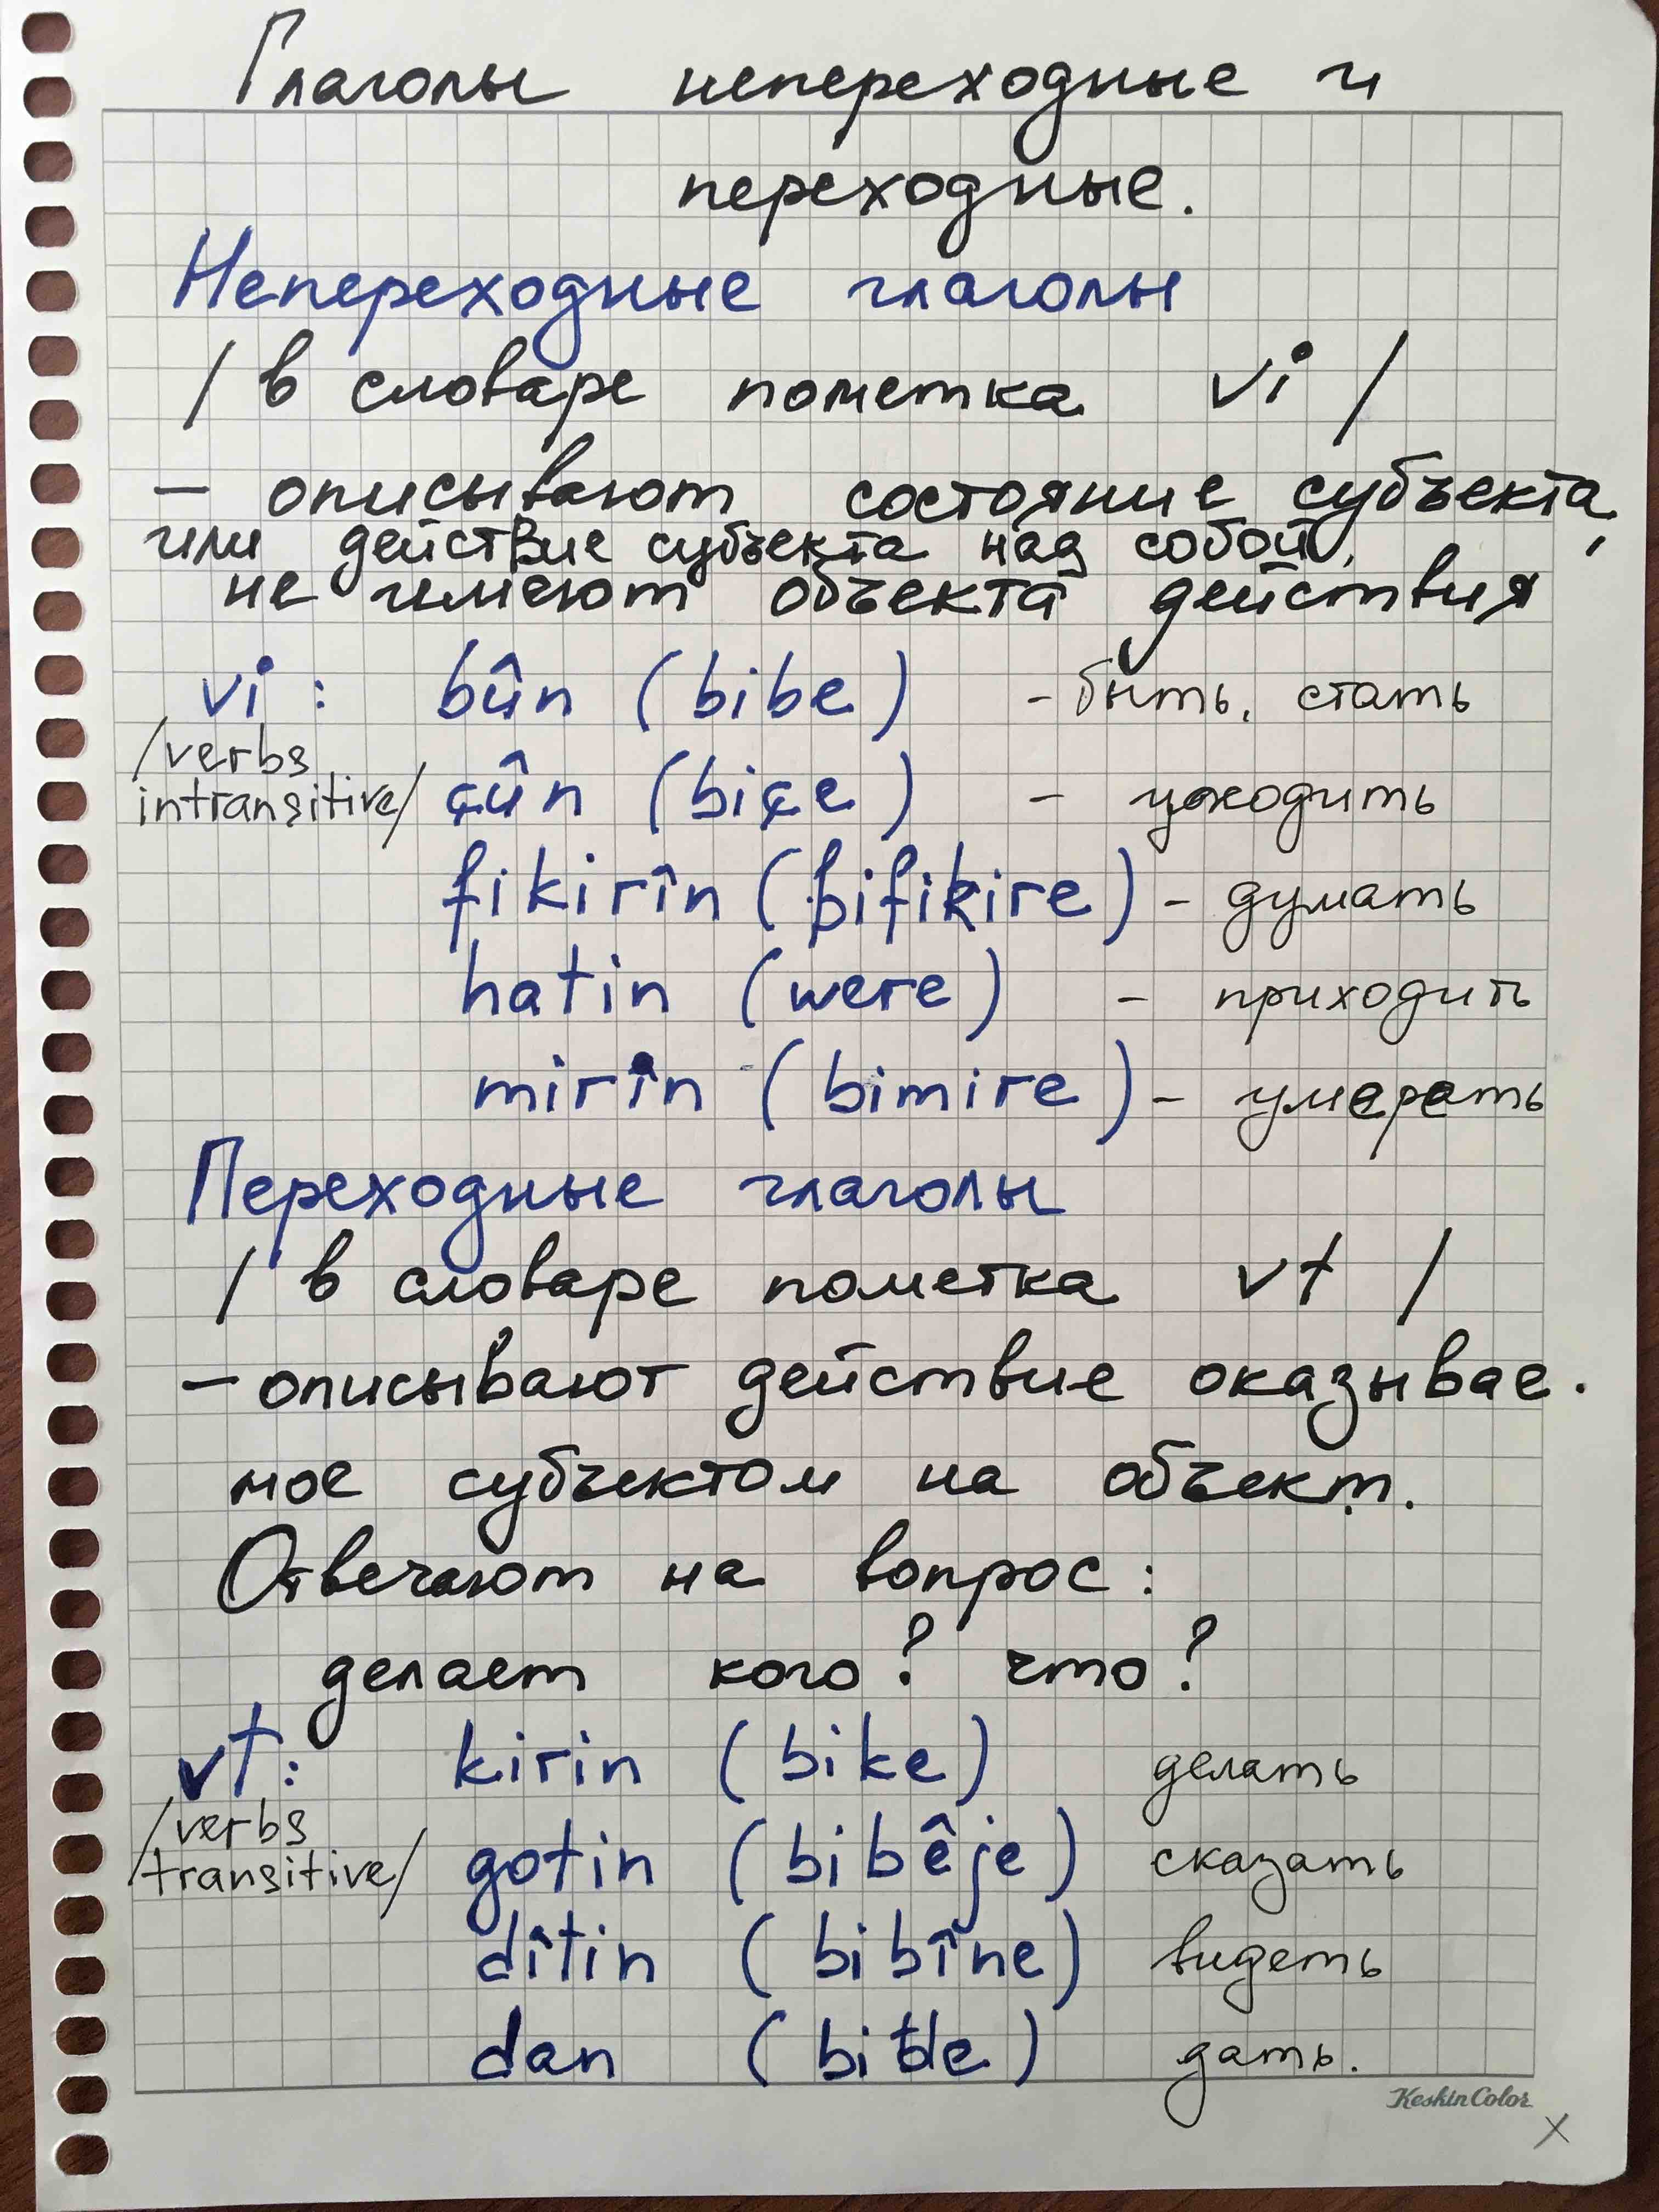 Глаголы непереходные и
переходные.
Непереходные глаголы
/ в словаре пометка vi /
— описывают состояние субъекта,
или действие субъекта над собой,
не имеют объекта действия
vi : bûn (bibe) - быть, стать
/verbs
intransitive/ çûn (biçe) - уходить
fikirîn (bifikire) - думать
hatin (were) - приходить
mirin (bimire) - умереть
Переходные глаголы
/ в словаре пометка vt /
— описывают действие оказывае-
мое субъектом на объект.
Отвечают на вопрос :
делает кого? что?
vt: kirin (bike) делать
/verbs
transitive/ gotin (bibêje) сказать
dîtin (bibîne) видеть
dan (bide) дать.
KeskinColor
X